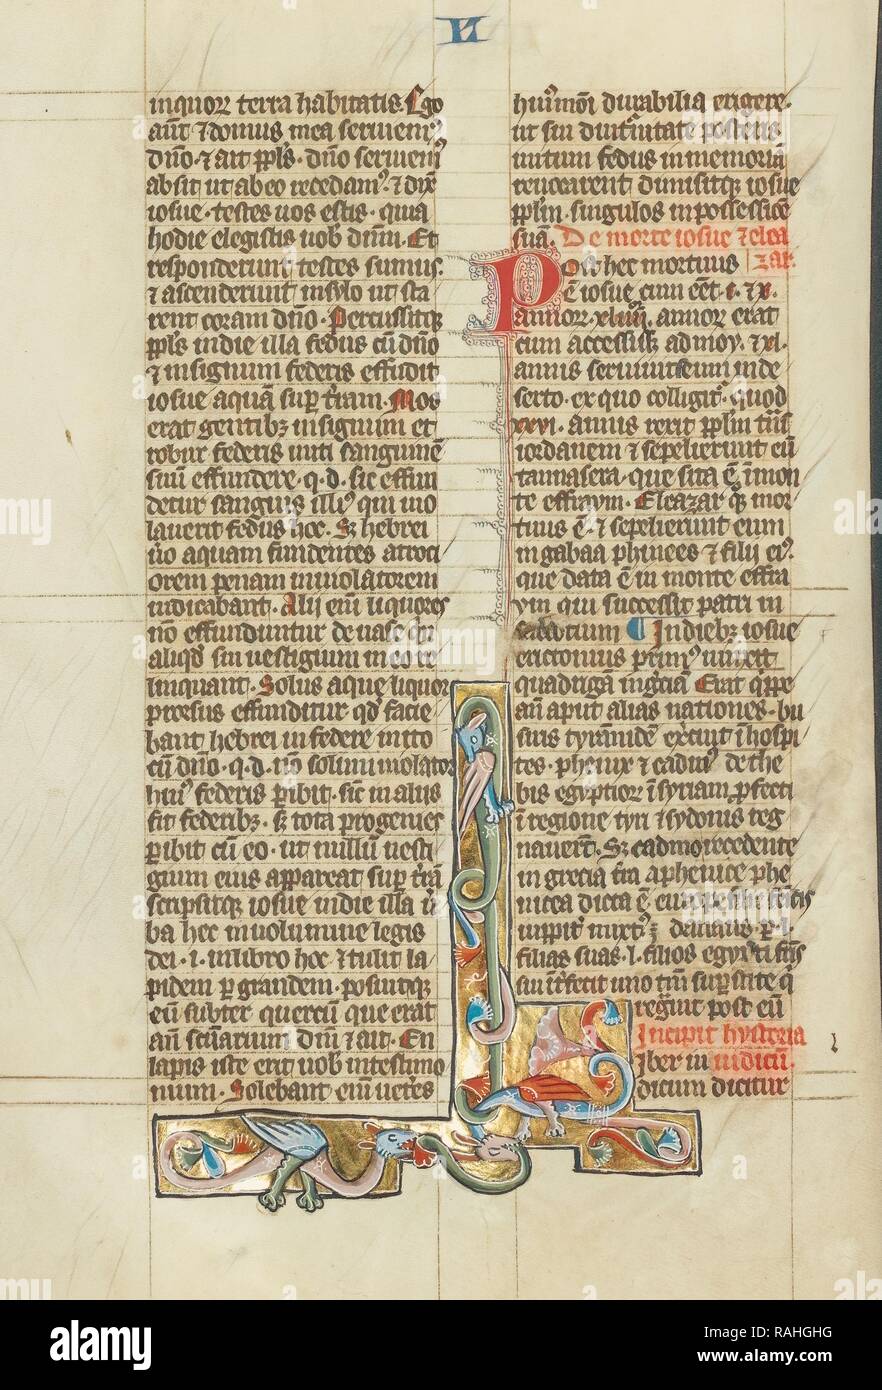 N
inquoꝝ terra habitatis. Ego
aūt ⁊ domus mea seruiemꝰ
dn̄o. ⁊ ait ppl̄s. dn̄o seruiemꝰ
absit ut ab eo recedamꝰ. ⁊ dix̄
iosue. testes uos estis. quia
hodie elegistis uob dnm̄. Et
responderunt testes sumus.
⁊ ascenderunt in sylo ut sta
rent coram dn̄o. Percussitqꝫ
ppl̄s in die illa fedus cū dn̄o
⁊ in signum federis effudit
iosue aquā sup t̄ram. Mos
erat gentibꝫ in signum et
robur federis initi sanguinē
suū effundere. q.d. sic effun
detur sanguis illiꝰ qui uio
lauerit fedus hoc. Sꝫ hebrei
ūo aquam fundentes atroci
orem penam inuiolatorem
indicabant. Alii eīm liquores
nō effunduntur de uase qn̄
aliqd̄ sui uestigium in eo re
linquant. Solus aque liquor
prorsus effunditur qd̄ facie
bant hebrei in federe inito
cū dn̄o. q.d. nō solum uiolator
huiꝰ federis ꝑibit. sic in aliis
fit federibꝫ. sꝫ tota progenies
ꝑibit cū eo. ut nullū uesti
gium eius appareat sup t̄rā
scripsitqꝫ iosue in die illa ū
ba hec in uolumine legis
dei. i. in libro hoc ⁊ tulit la
pidem ꝑgrandem. posuitqꝫ
eum subter quercū que erat
an̄ sc̄uarium dnī ⁊ ait. En
lapis iste erit uob in testimo
nium. Solebant eīm ueteres
huiꝰmōi durabilia erigere.
ut sui diuturnitate posteris
initum fedus in memoriā
reuocarent dimisitqꝫ iosue
pplm̄. singulos in possessiōē
suā. De morte iosue ⁊ elea
zar.
Post hec mortuus
ē iosue cum eēt. c. ⁊ x.
annoꝝ. xliiij. annoꝝ erat
cum accessisset ad moy. ⁊ xl.
annis seruiuit ei in de
serto. ex quo colligitꝰ. quod
xxvi. annis rexit pplm̄ t̄ns
iordanem ⁊ sepelierunt eū
tamnasera. que sita ē ī mon
te effraym. Eleazar qꝫ mor
tuus ē. ⁊ sepelierunt eum
in gabaa phinees ⁊ filii eiꝰ.
que data ē in monte effra
ym qui successit patri in
sacerdotium ¶ In diebꝫ iosue
erictonius primꝰ iunxit
quadrigā in grecia Erat qꝑpe
an̄ aput alias nationes. bu
siris tyrannidem exercuit ī hospi
tes. phenix ⁊ cadmꝰ de the
bis egyptioꝝ ī syriam ꝓfecti
ī regione tyri ⁊ sydonis reg
nauerūt. Sꝫ cadmo recedente
in grecia t̄ra a phenice phe
nicea dicta ē
iuppitꝰ mixtꝰ ē danaus ꝑ. l.
filias suas. l. filios egypti fr̄is
sui īt̄rfecit uno tm̄ supstite q̇
regnauit post eū
Incipit hystoria
iudicū.
Liber iu
dicum dicitur
alamy
Image ID: RAHGHG
www.alamy.com